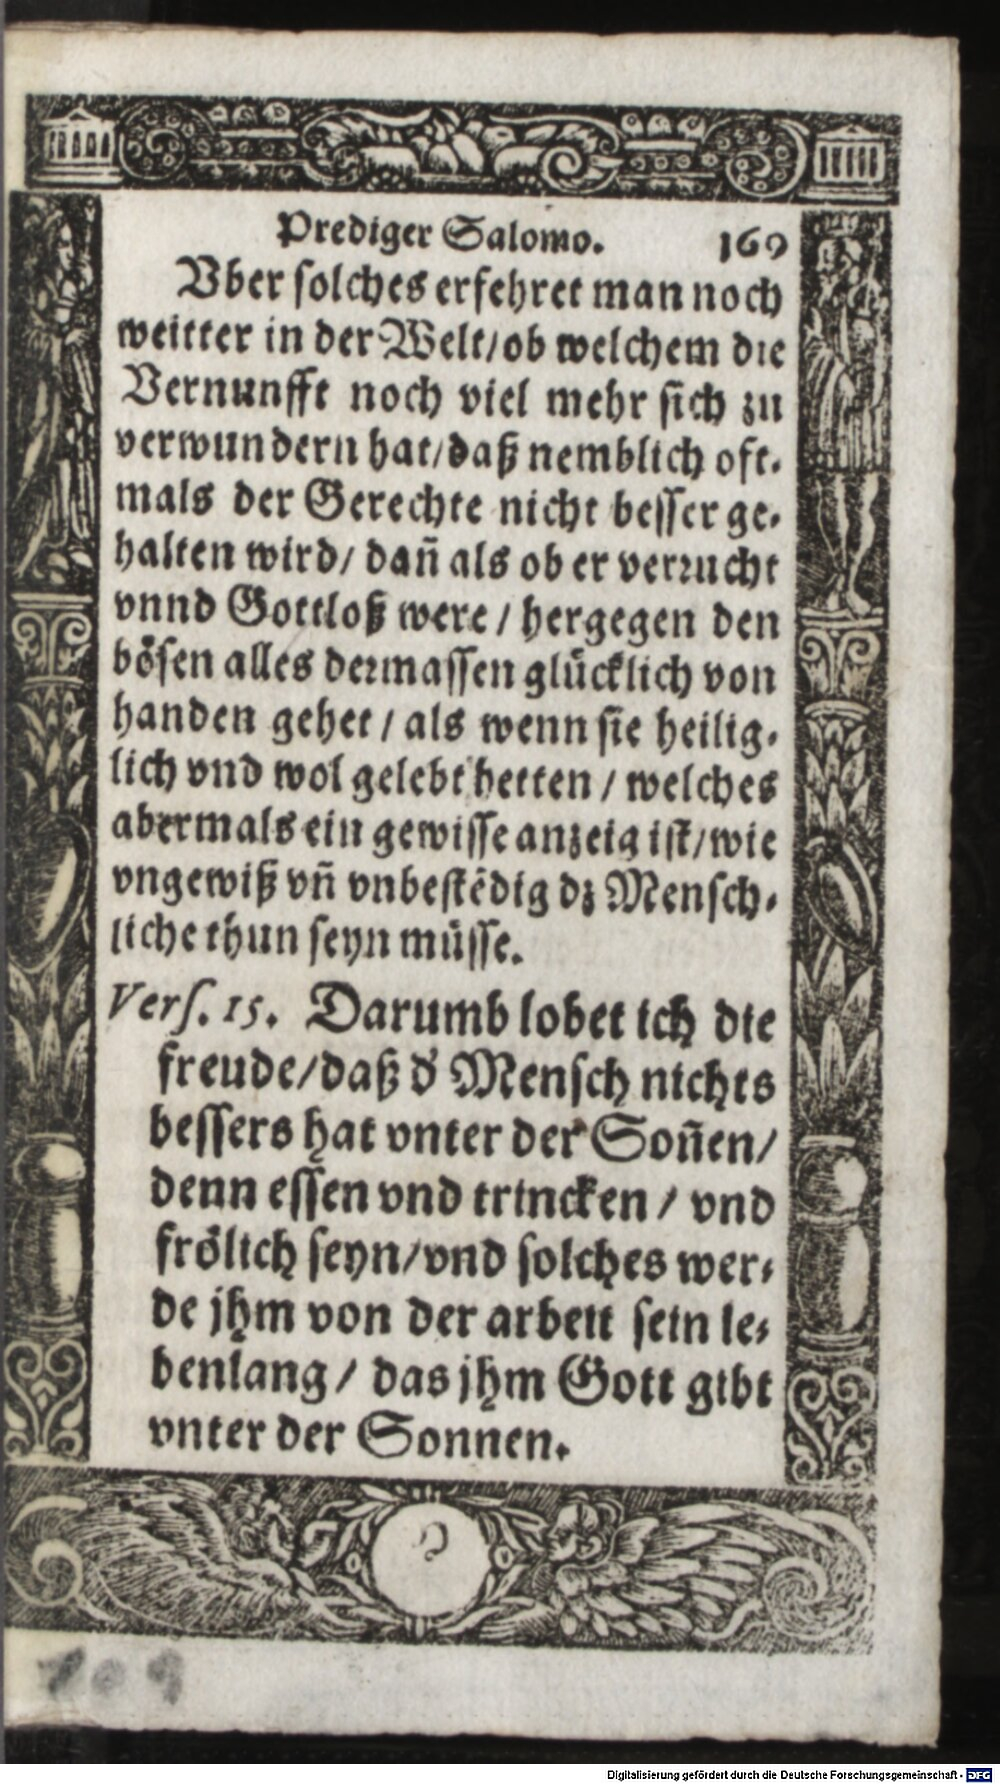 Prediger Salomo. 169
Vber solches erfehret man noch
weitter in der Welt/ob welchem die
Vernunfft noch viel mehr sich zu
verwundern hat/daß nemblich oft-
mals der Gerechte nicht besser ge-
halten wird/ dañ als ob er verrucht
vnnd Gottloß were / hergegen den
bösen alles dermassen glücklich von
handen gehet / als wenn sie heilig-
lich vnd wol gelebt hetten / welches
abermals ein gewisse anzeig ist/wie
vngewiß vñ vnbestẽdig dz Mensch-
liche thun seyn müsse.
Vers. 15. Darumb lobet ich die
freude/daß d' Mensch nichts
bessers hat vnter der Soñen/
denn essen vnd trincken / vnd
frölich seyn/vnd solches wer-
de jhm von der arbeit sein le-
benlang / das jhm Gott gibt
vnter der Sonnen.
109
Digitalisierung gefördert durch die Deutsche Forschungsgemeinschaft - DFG